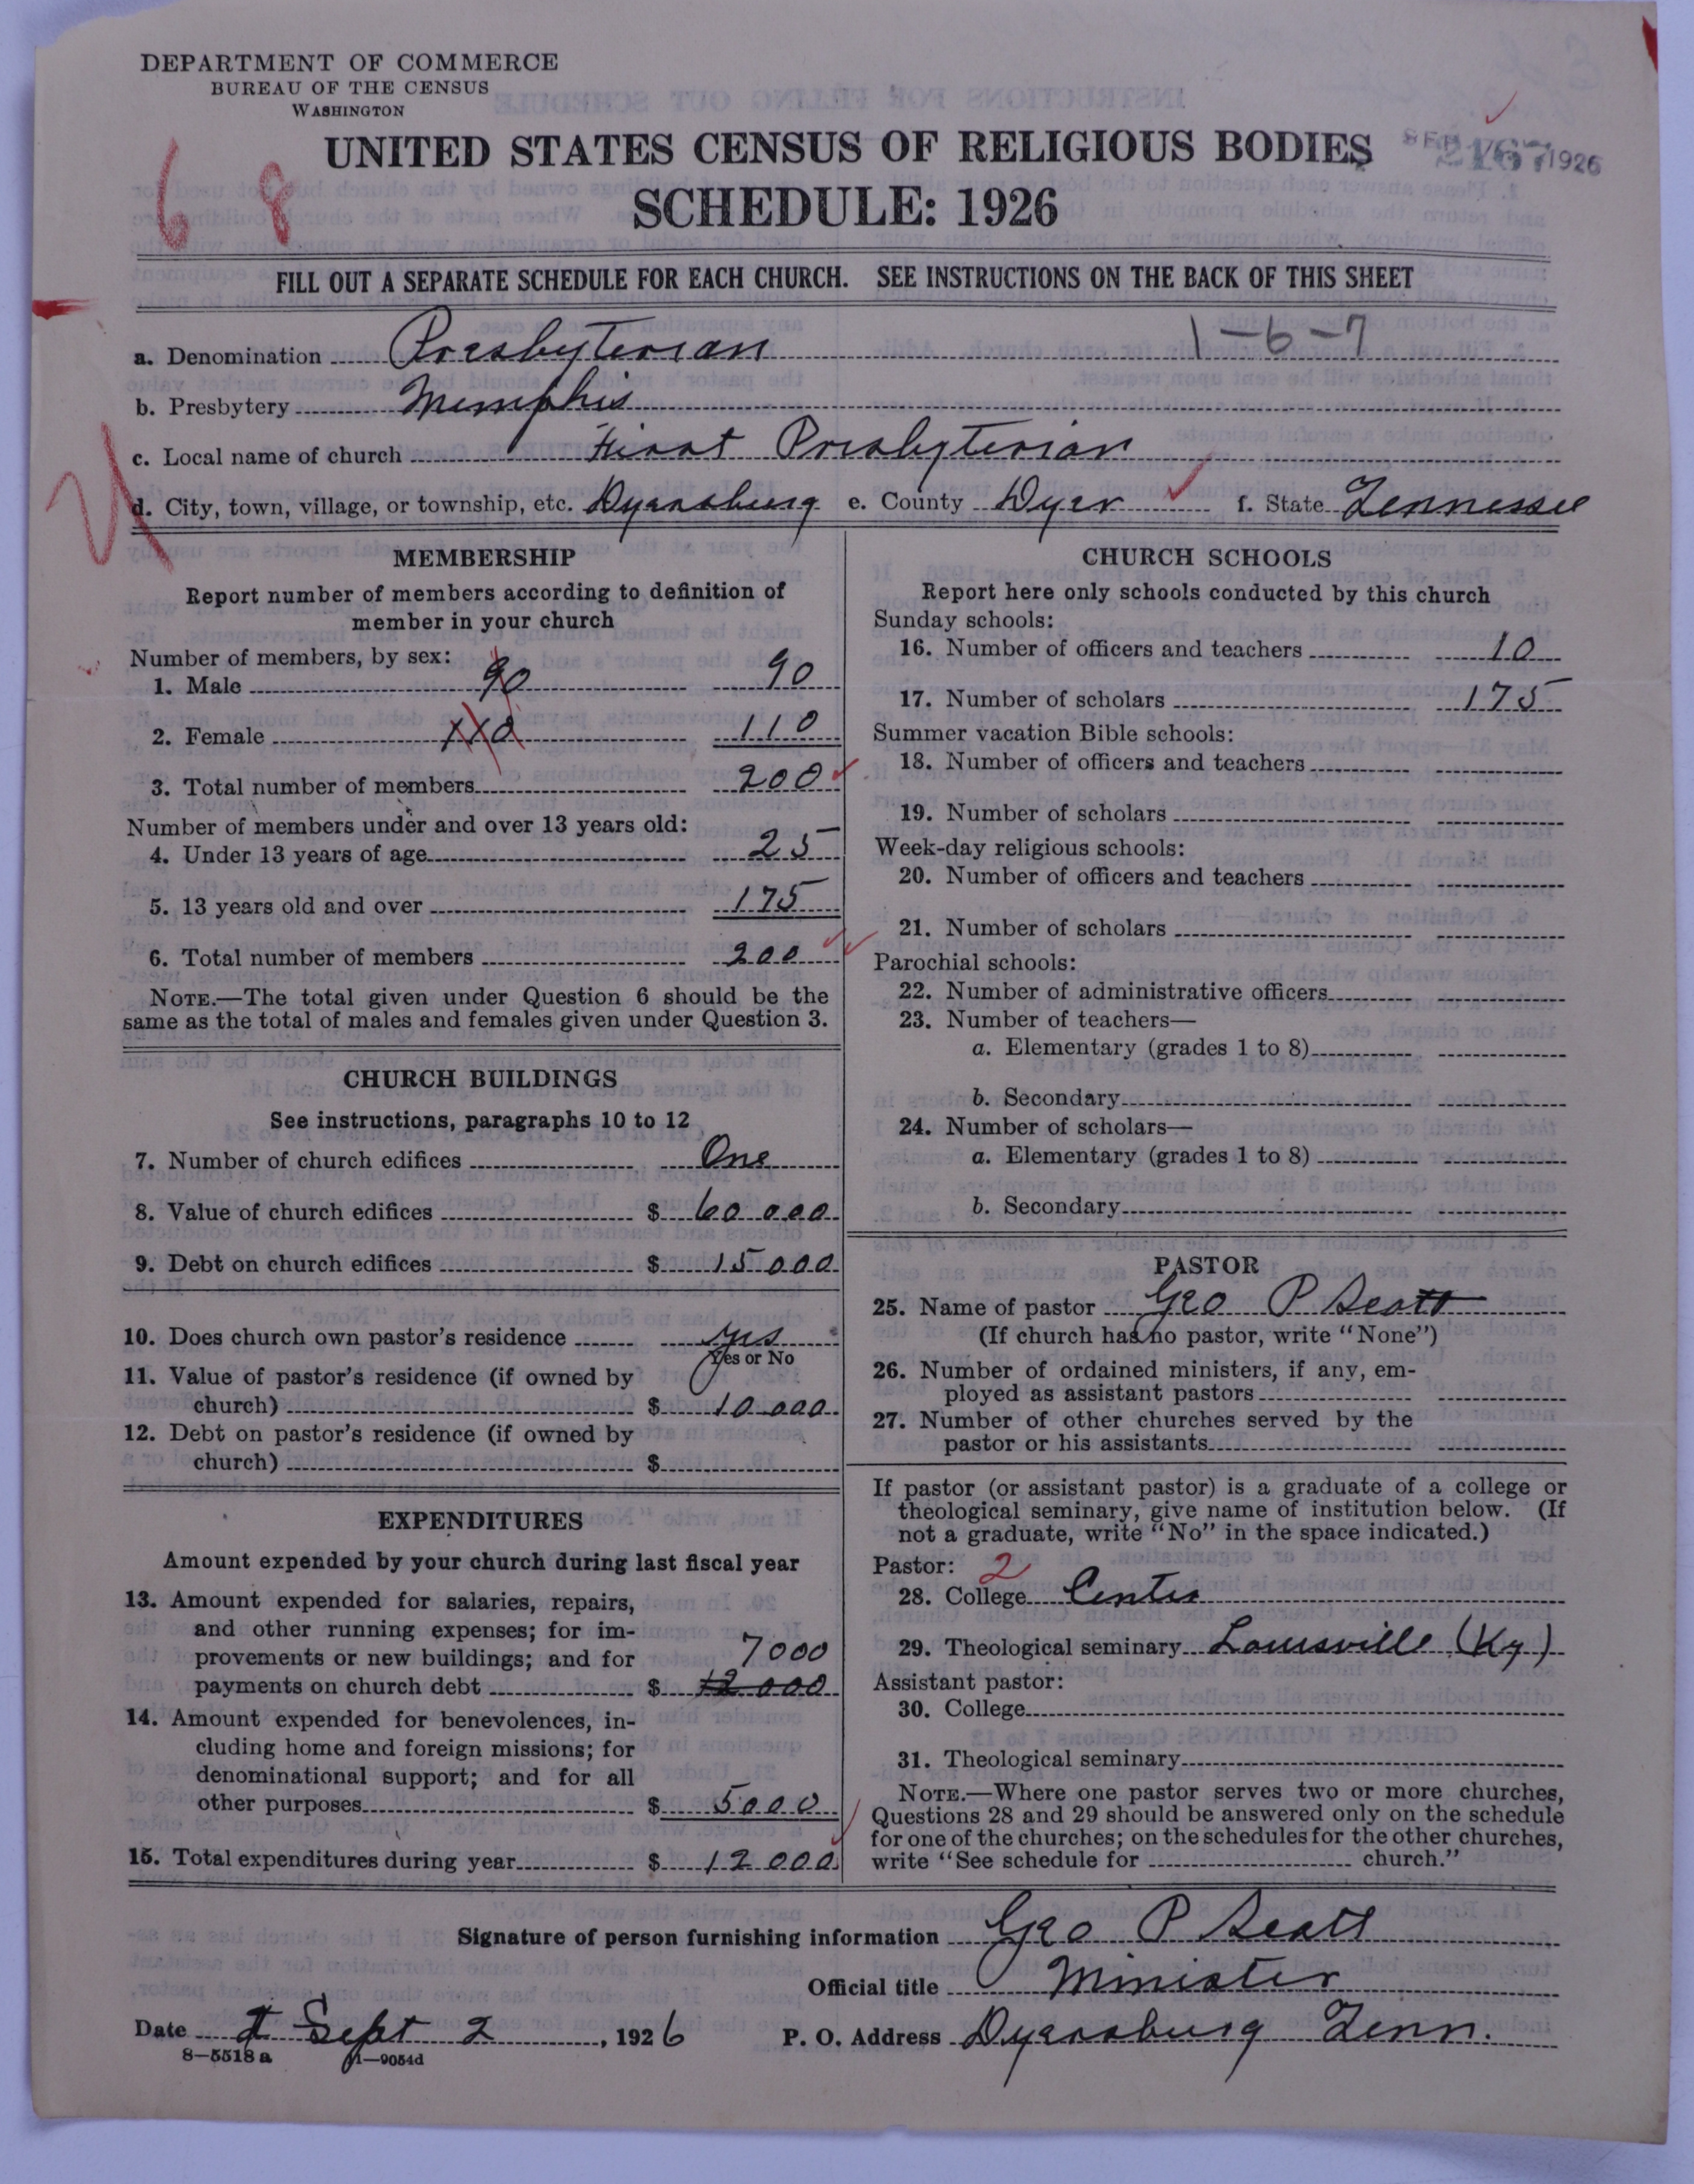 DEPARTMENT OF COMMERCE
BUREAU OF THE CENSUS
WASHINGTON
UNITED STATES CENSUS OF RELIGIOUS BODIES
SCHEDULE: 1926
1926
6 8
FILL OUT A SEPARATE SCHEDULE FOR EACH CHURCH. SEE INSTRUCTIONS ON THE BACK OF THIS SHEET
1-6-7
a. Denomination Presbyterian
b. Presbytery Memphis
c. Local name of church First Presbyterian
d. City, town, village, or township, etc. Dyersburg e. County Dyer f. State Tennessee
MEMBERSHIP
Report number of members according to definition of
member in your church
Number of members, by sex:
1. Male 90 90
2. Female 110 110
3. Total number of members 200
Number of members under and over 13 years old:
4. Under 13 years of age 25
5. 13 years old and over 175
6. Total number of members 200
NOTE.—The total given under Question 6 should be the
same as the total of males and females given under Question 3.
CHURCH BUILDINGS
See instructions, paragraphs 10 to 12
7. Number of church edifices One
8. Value of church edifices $ 60 000
9. Debt on church edifices $ 15 000
10. Does church own pastor's residence yes
Yes or No
11. Value of pastor's residence (if owned by
church) $ 10 000
12. Debt on pastor's residence (if owned by
church) $
EXPENDITURES
Amount expended by your church during last fiscal year
13. Amount expended for salaries, repairs,
and other running expenses; for im-
provements or new buildings; and for 7000
payments on church debt $ 12 000
14. Amount expended for benevolences, in-
cluding home and foreign missions; for
denominational support; and for all
other purposes $ 5000
15. Total expenditures during year $ 12 000
CHURCH SCHOOLS
Report here only schools conducted by this church
Sunday schools:
16. Number of officers and teachers 10
17. Number of scholars 175
Summer vacation Bible schools:
18. Number of officers and teachers
19. Number of scholars
Week-day religious schools:
20. Number of officers and teachers
21. Number of scholars
Parochial schools:
22. Number of administrative officers
23. Number of teachers—
a. Elementary (grades 1 to 8)
b. Secondary
24. Number of scholars—
a. Elementary (grades 1 to 8)
b. Secondary
PASTOR
25. Name of pastor Geo P Scott
(If church has no pastor, write "None")
26. Number of ordained ministers, if any, em-
ployed as assistant pastors
27. Number of other churches served by the
pastor or his assistants
If pastor (or assistant pastor) is a graduate of a college or
theological seminary, give name of institution below. (If
not a graduate, write "No" in the space indicated.)
Pastor: 2
28. College Centre
29. Theological seminary Louisville (Ky)
Assistant pastor:
30. College
31. Theological seminary
NOTE.—Where one pastor serves two or more churches,
Questions 28 and 29 should be answered only on the schedule
for one of the churches; on the schedules for the other churches,
write "See schedule for church."
Signature of person furnishing information Geo P Scott
Official title Minister
Date Sept 2, 1926 P. O. Address Dyersburg Tenn.
8—5518 a 11—9054d